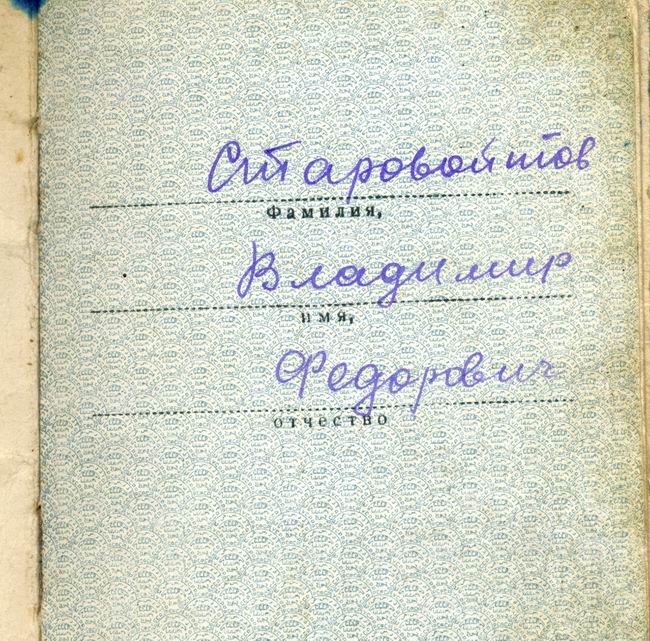 Старовойтов
Фамилия,
Владимир
имя,
Федорович
отчество